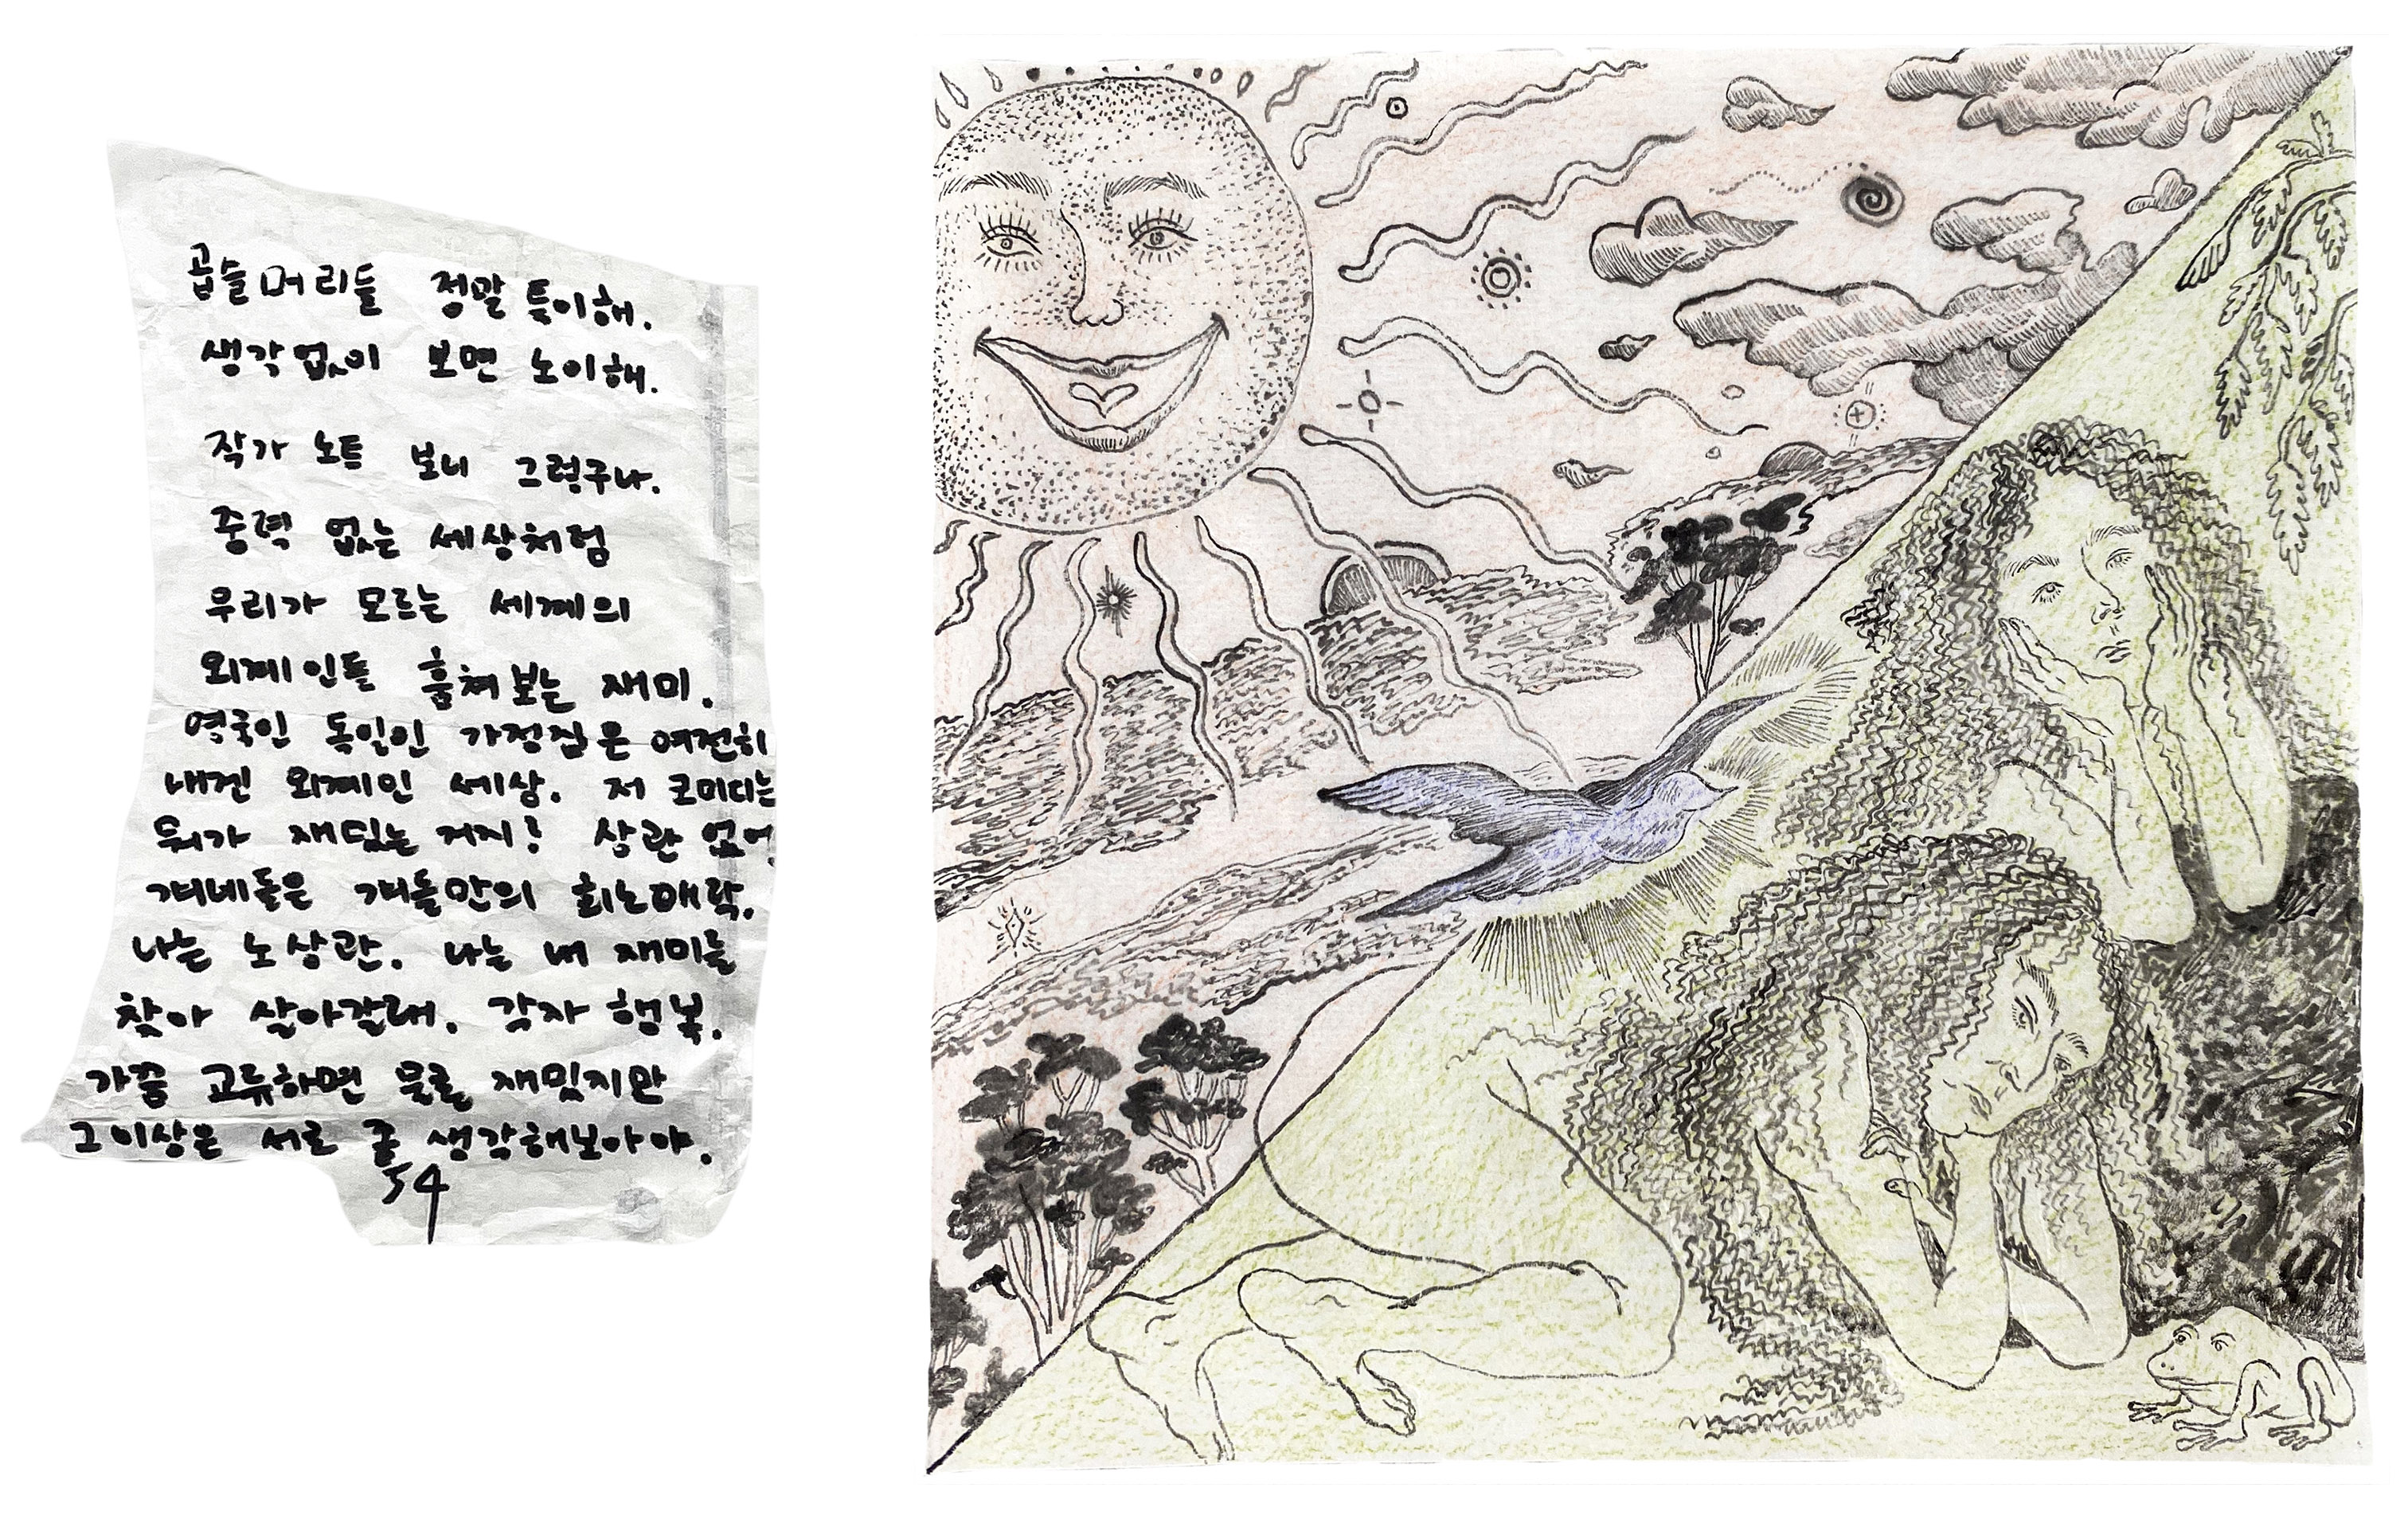 곱슬머리들 정말 특이해.
생각없이 보면 노이해.
작가 노트 보니 그렇구나.
중력 없는 세상처럼
우리가 모르는 세계의
외계인들 훔쳐보는 재미.
영국인 독일인 가정집은 여전히
내겐 외계인 세상. 저 코미디는
뭐가 재밌는거지? 상관 없어
걔네들은 걔들만의 희노애락.
나는 노상관. 나는 내 재미를
찾아 살아갈래. 각자 행복.
가끔 교류하면 물론 재밌지만
그 이상은 서로 좀 생각해보아야.
54